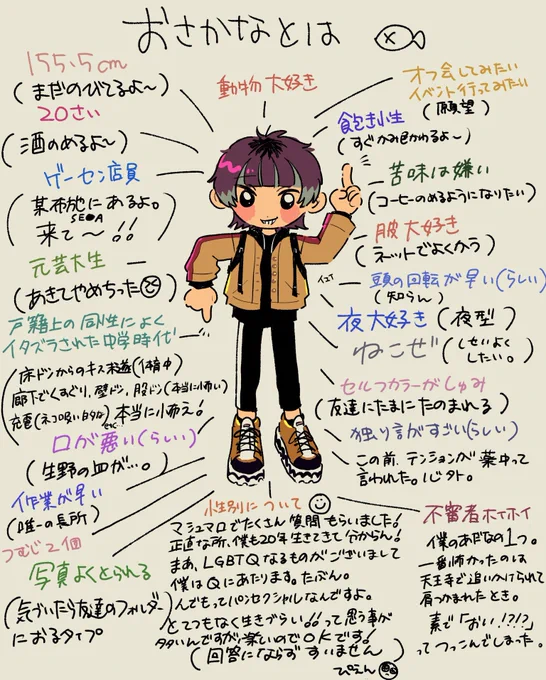 おさかなとは
155.5cm
(まだのびてるよ〜)
20さい
(酒のめるよ〜)
ゲーセン店員
(某布施にあるよ。
SEGA
来て〜!!)
元芸大生
(あきてやめちった)
戸籍上の同性によく
イタズラされた中学時代
(床ドンからのキス未遂(体育中)
廊下でくすぐり、壁ドン、股ドン(本当に怖い)
充電(ネコ吸い的な)etc 本当に怖えぇ!
口が悪い(らしい)
(生野の血が…。)
作業が早い
(唯一の長所)
つむじ2個
写真よくとられる
(気づいたら友達のフォルダー
におるタイプ)
動物大好き
オフ会してみたい
イベント行ってみたい
(願望)
飽き性
(すぐかみ色かわるよ〜)
苦味は嫌い
(コーヒーのめるようになりたい)
服大好き
(ネットでよくかう)
イエイ
頭の回転が早い(らしい)
(知らん)
夜大好き(夜型)
ねこぜ(しせいよく
したい。)
セルフカラーがしゅみ
(友達にたまにたのまれる)
独り言がすごい(らしい)
この前、テンションが薬中って
言われた。
不審者ホイホイ
僕のあだなの1つ。
一番怖かったのは
天王寺で追いかけられて
肩つかまれたとき。
素で「おい!?!?」
ってつっこんでしまった。
性別について
マシュマロでたくさん質問もらいました!
正直な所、僕も20年生きてきて分からん!
まあ、LGBTQなるものがございまして
僕はQにあたります。たぶん。
んでもってパンセクシャルなんですよ。
とてつもなく生きづらい!!って思う事が
多いんですが楽しいのでOKです!
(回答にならずすいません)
ぴえん